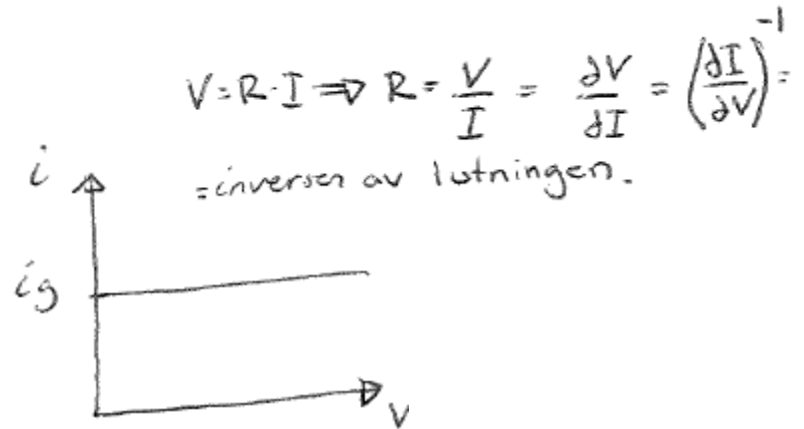 V=R·I ⇒ R = V/I = ∂V/∂I = (∂I/∂V)^-1 =
=inversen av lutningen.
i
ig
V